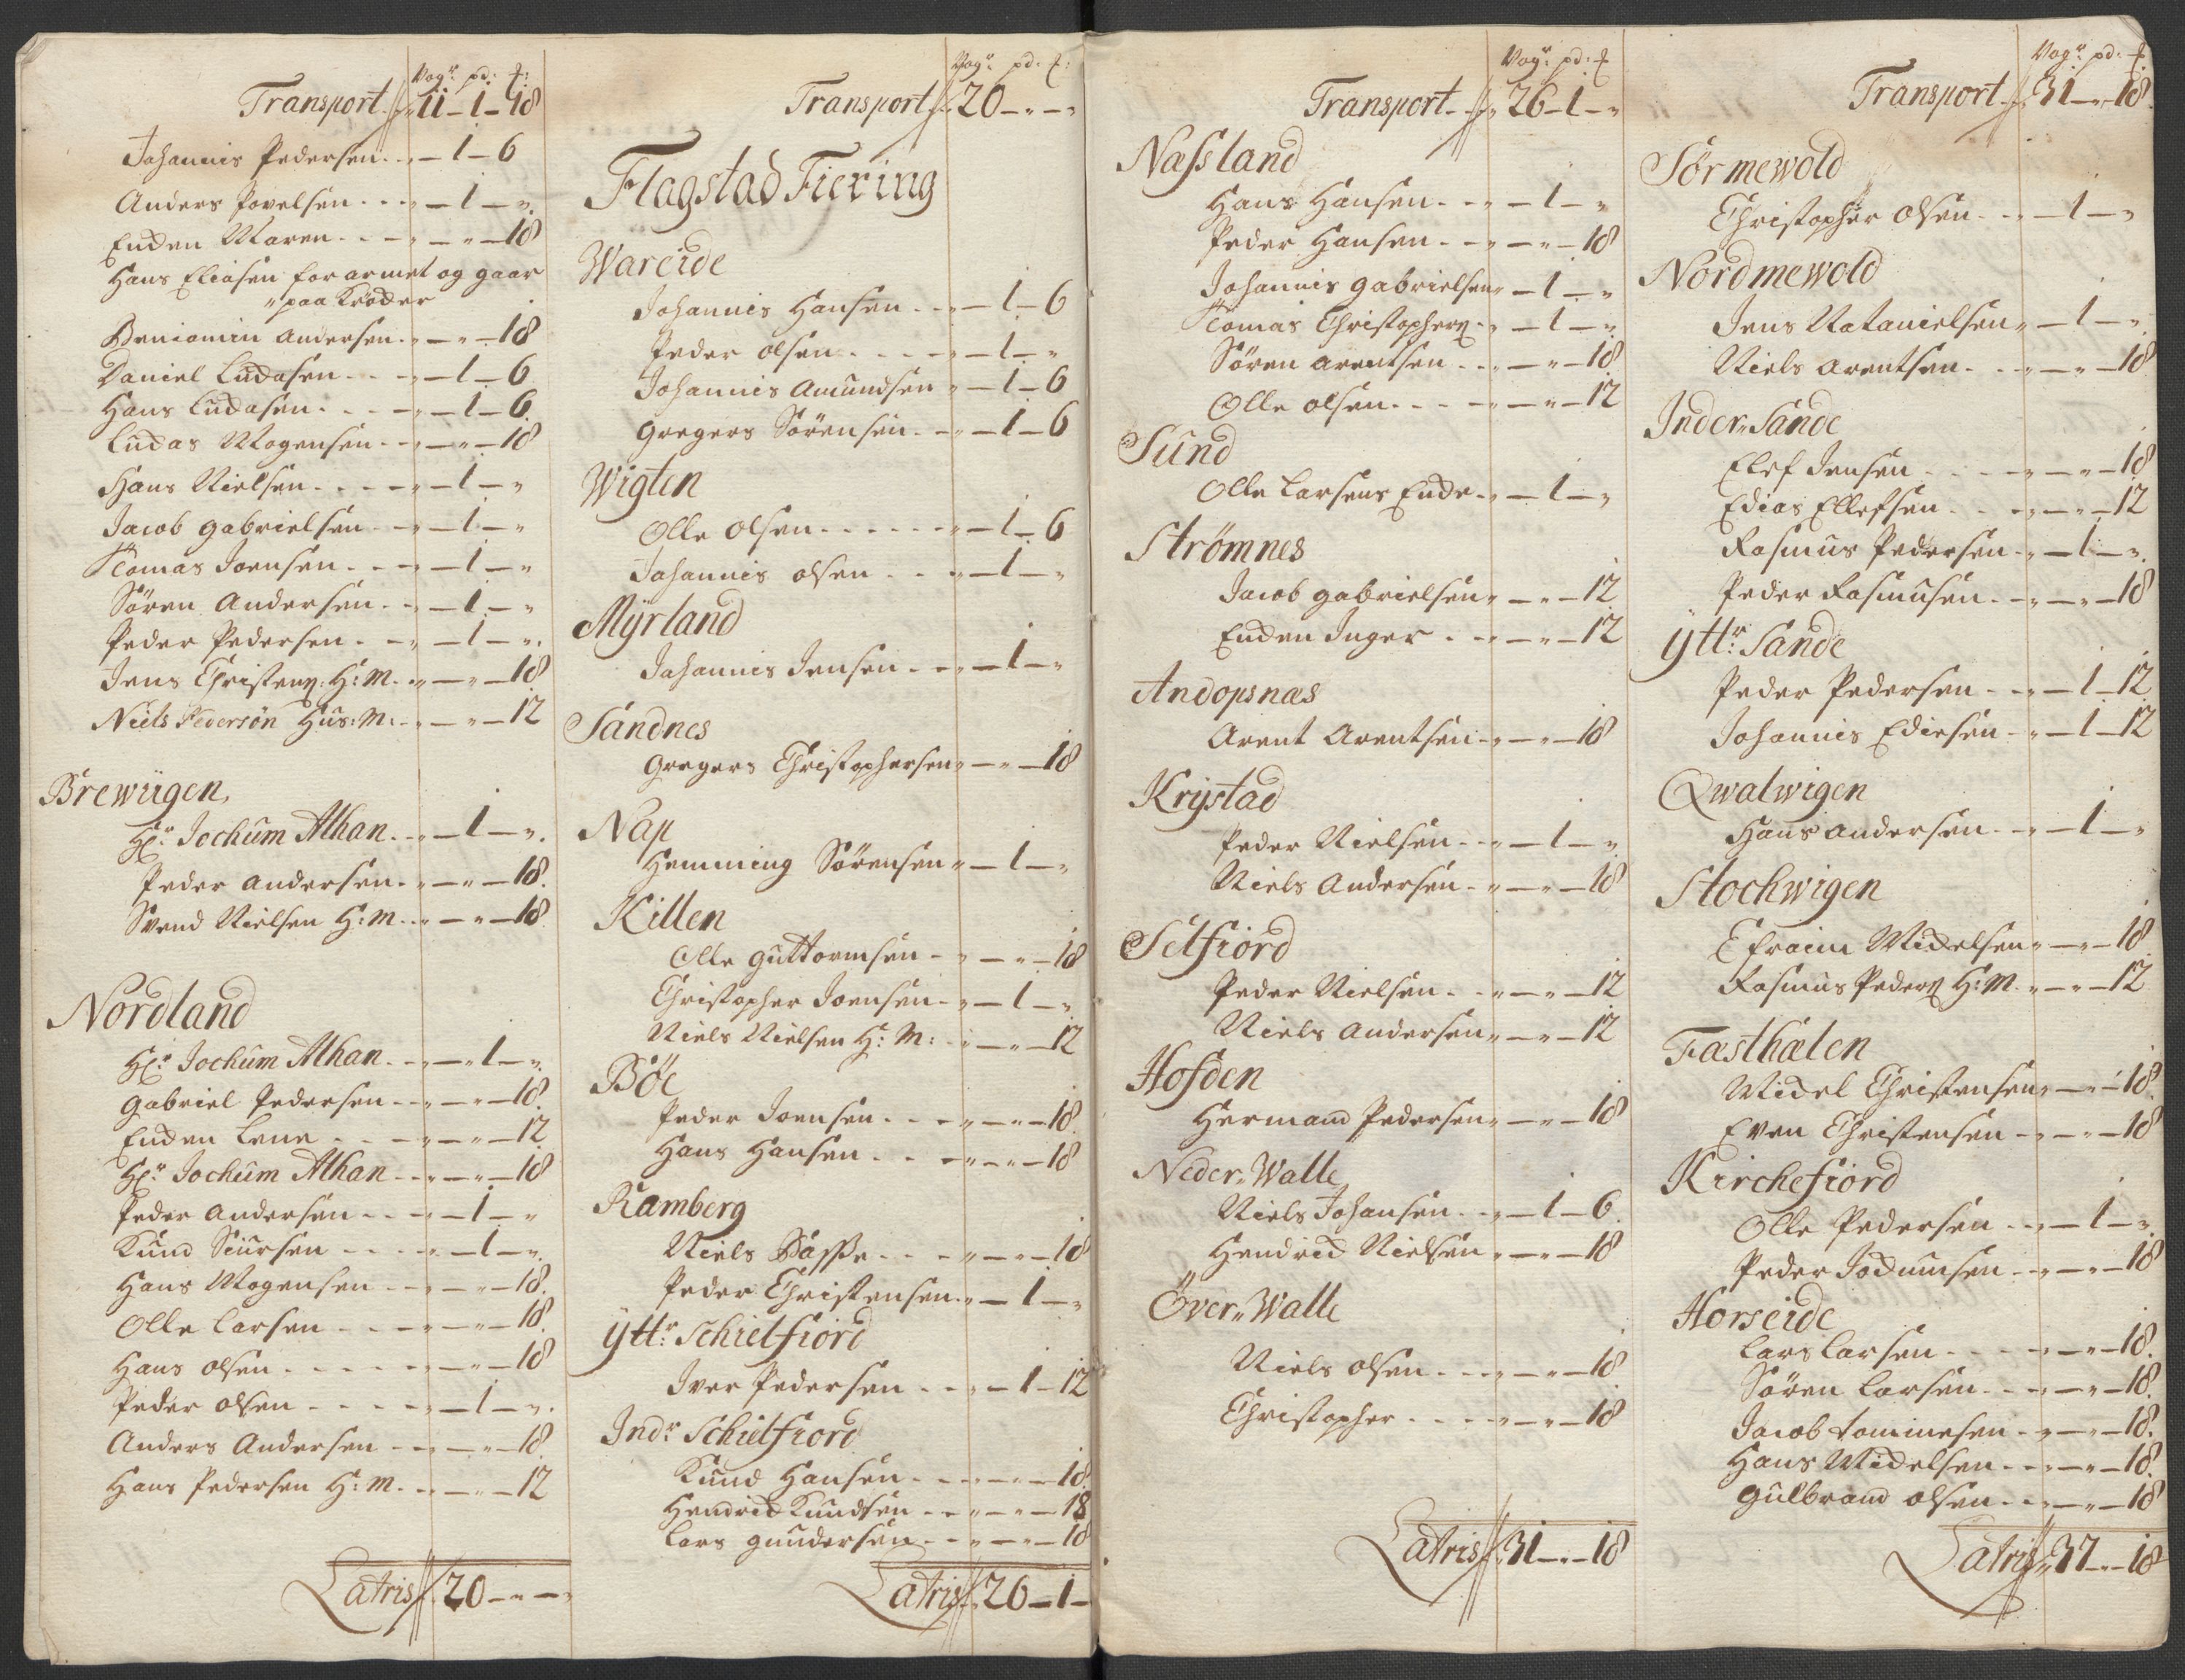 Vog:r pd: ℔:
Transport. 11–1–18
Johannis Pedersen. . . – 1 – 6
Anders Povelsen . . . – 1 – „
Enden Maren . . . – „ – 18
Hans Eliasen forarmet og gaar
„ paa Kröder
Beniamin Andersen . – „ – 18
Daniel Ludasen . . – 1 – 6
Hans Ludasen . . . – 1 – 6
Ludas Mogensen . . – „ – 18
Hans Nielsen . . . – 1 – „
Jacob Gabrielsen . – 1 – „
Tomas Joensen . . . – 1 – „
Sören Andersen . . – 1 – „
Peder Pedersen . . – 1 – „
Jens Christens: H: M. . – „ – 18
Niels Pedersön Hus: M: . – „ – 12
Brewiigen,
Hr: Jochum Alhan . . – 1 – „
Peder Andersen . . – „ – 18
Svend Nielsen H: M . . – „ – 18
Nordland
Hr: Jochum Alhan . . – 1 – „
Gabriel Pedersen . . – „ – 18
Enden Lene . . . – „ – 12
Hr: Jochum Alhan . . – „ – 18
Peder Andersen . . . – 1 – „
Kund Siursen . . . – 1 – „
Hans Mogensen . . – „ – 18
Olle Larsen . . . – „ – 18
Hans Olsen . . . . – „ – 18
Peder Olsen . . . . – 1 – „
Anders Andersen . . – „ – 18
Hans Pedersen H: M. . . – „ – 12
Latris 20 – „ – „
Vog:r pd: ℔:
Transport 20 – „ – „
Flagstad Fiering
Wareide
Johannis Hansen . . – 1 – 6
Peder Olsen . . . . – 1 – „
Johannis Amundsen – 1 – 6
Gregers Sörensen . . – 1 – 6
Wigten
Olle Olsen . . . . . – 1 – 6
Johannis Olsen . . . – 1 – „
Myrland
Johannis Jensen . . . – 1 – „
Sandnes
Gregers Christophersen – „ – 18
Nap
Hemming Sörensen – 1 – „
Killen
Olle Guttormsen . – „ – 18
Christopher Joensen . – 1 – „
Niels Nielsen H: M: . – „ – 12
Böe
Peder Joensen . . . – „ – 18
Hans Hansen . . . – „ – 18
Ramberg
Niels Basse . . . – „ – 18
Peder Christensen . – 1 – „
Ytt:r Schielfiord
Iver Pedersen . . . – 1 – 12
Ind:r Schielfiord
Kund Hansen . . . – „ – 18
Hendrich Kundsen . . – „ – 18
Lars Gundersen . . – „ – 18
Latris 26 – 1 –
Vog:r pd: ℔
Transport. 26 – 1 – „
Næssland
Hans Hansen . . – 1 – „
Peder Hansen . . – „ – 18
Johannis Gabrielsen – 1 – „
Tomas Christophers: – 1 – „
Sören Arentsen . . – „ – 18
Olle Olsen . . . – „ – 12
Sund
Olle Larsens Ende . – 1 – „
Strömnes
Jacob Gabrielsen – „ – 12
Enden Inger . . – „ – 12
Andopsnæs
Arent Arentsen . – „ – 18
Krystad
Peder Nielsen . . – 1 – „
Niels Andersen . – „ – 18
Selfiord
Peder Nielsen . . – „ – 12
Niels Andersen – „ – 12
Hofden
Hermand Pedersen – „ – 18
Neder„Walle
Niels Johansen . . – 1 – 6
Hendrich Nielsen – „ – 18
Över„Walle
Niels Olsen . . . – „ – 18
Christopher . . . . – „ – 18
Latris 31 – „ – 18
Vog:r pd: ℔
Transport 31 – „ – 18
Sörmewold
Christopher Olsen . . – 1 – „
Nordmewold
Jens Natanielsen – 1 – „
Niels Arentsen . . . – „ – 18
Inder„Sande
Elef Jensen . . . – „ – 18
Edias Ellefsen . . – „ – 12
Rasmus Pedersen . – 1 – „
Peder Rasmusen . . – „ – 18
Ytt:r Sande
Peder Pedersen . . – 1 – 12
Johannis Ediesen . – 1 – 12
Qwalwigen
Hans Andersen . . – 1 – „
Stochwigen
Efraim Michelsen – „ – 18
Rasmus Peders: H: M. – „ – 12
Fasthælen
Michel Christensen – „ – 18
Even Christensen . . – „ – 18
Kirchefiord
Olle Pedersen . . – 1 – „
Peder Jochumsen . . – „ – 18
Horseide
Lars Larsen . . . – „ – 18
Sören Larsen . . – „ – 18
Jacob Tommesen . – „ – 18
Hans Michelsen . . – „ – 18
Gulbrand Olsen . . – „ – 18
Latris 37 – „ – 18